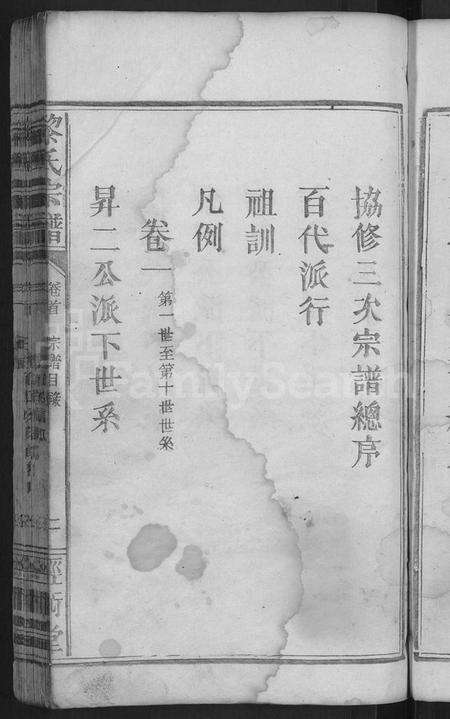 協修三次宗譜總序
百代派行
祖訓
凡例
卷一 第一世至第十世世系
昇二公派下世系
黎氏宗譜
卷首 宗譜目錄
二
經術堂
FamilySearch